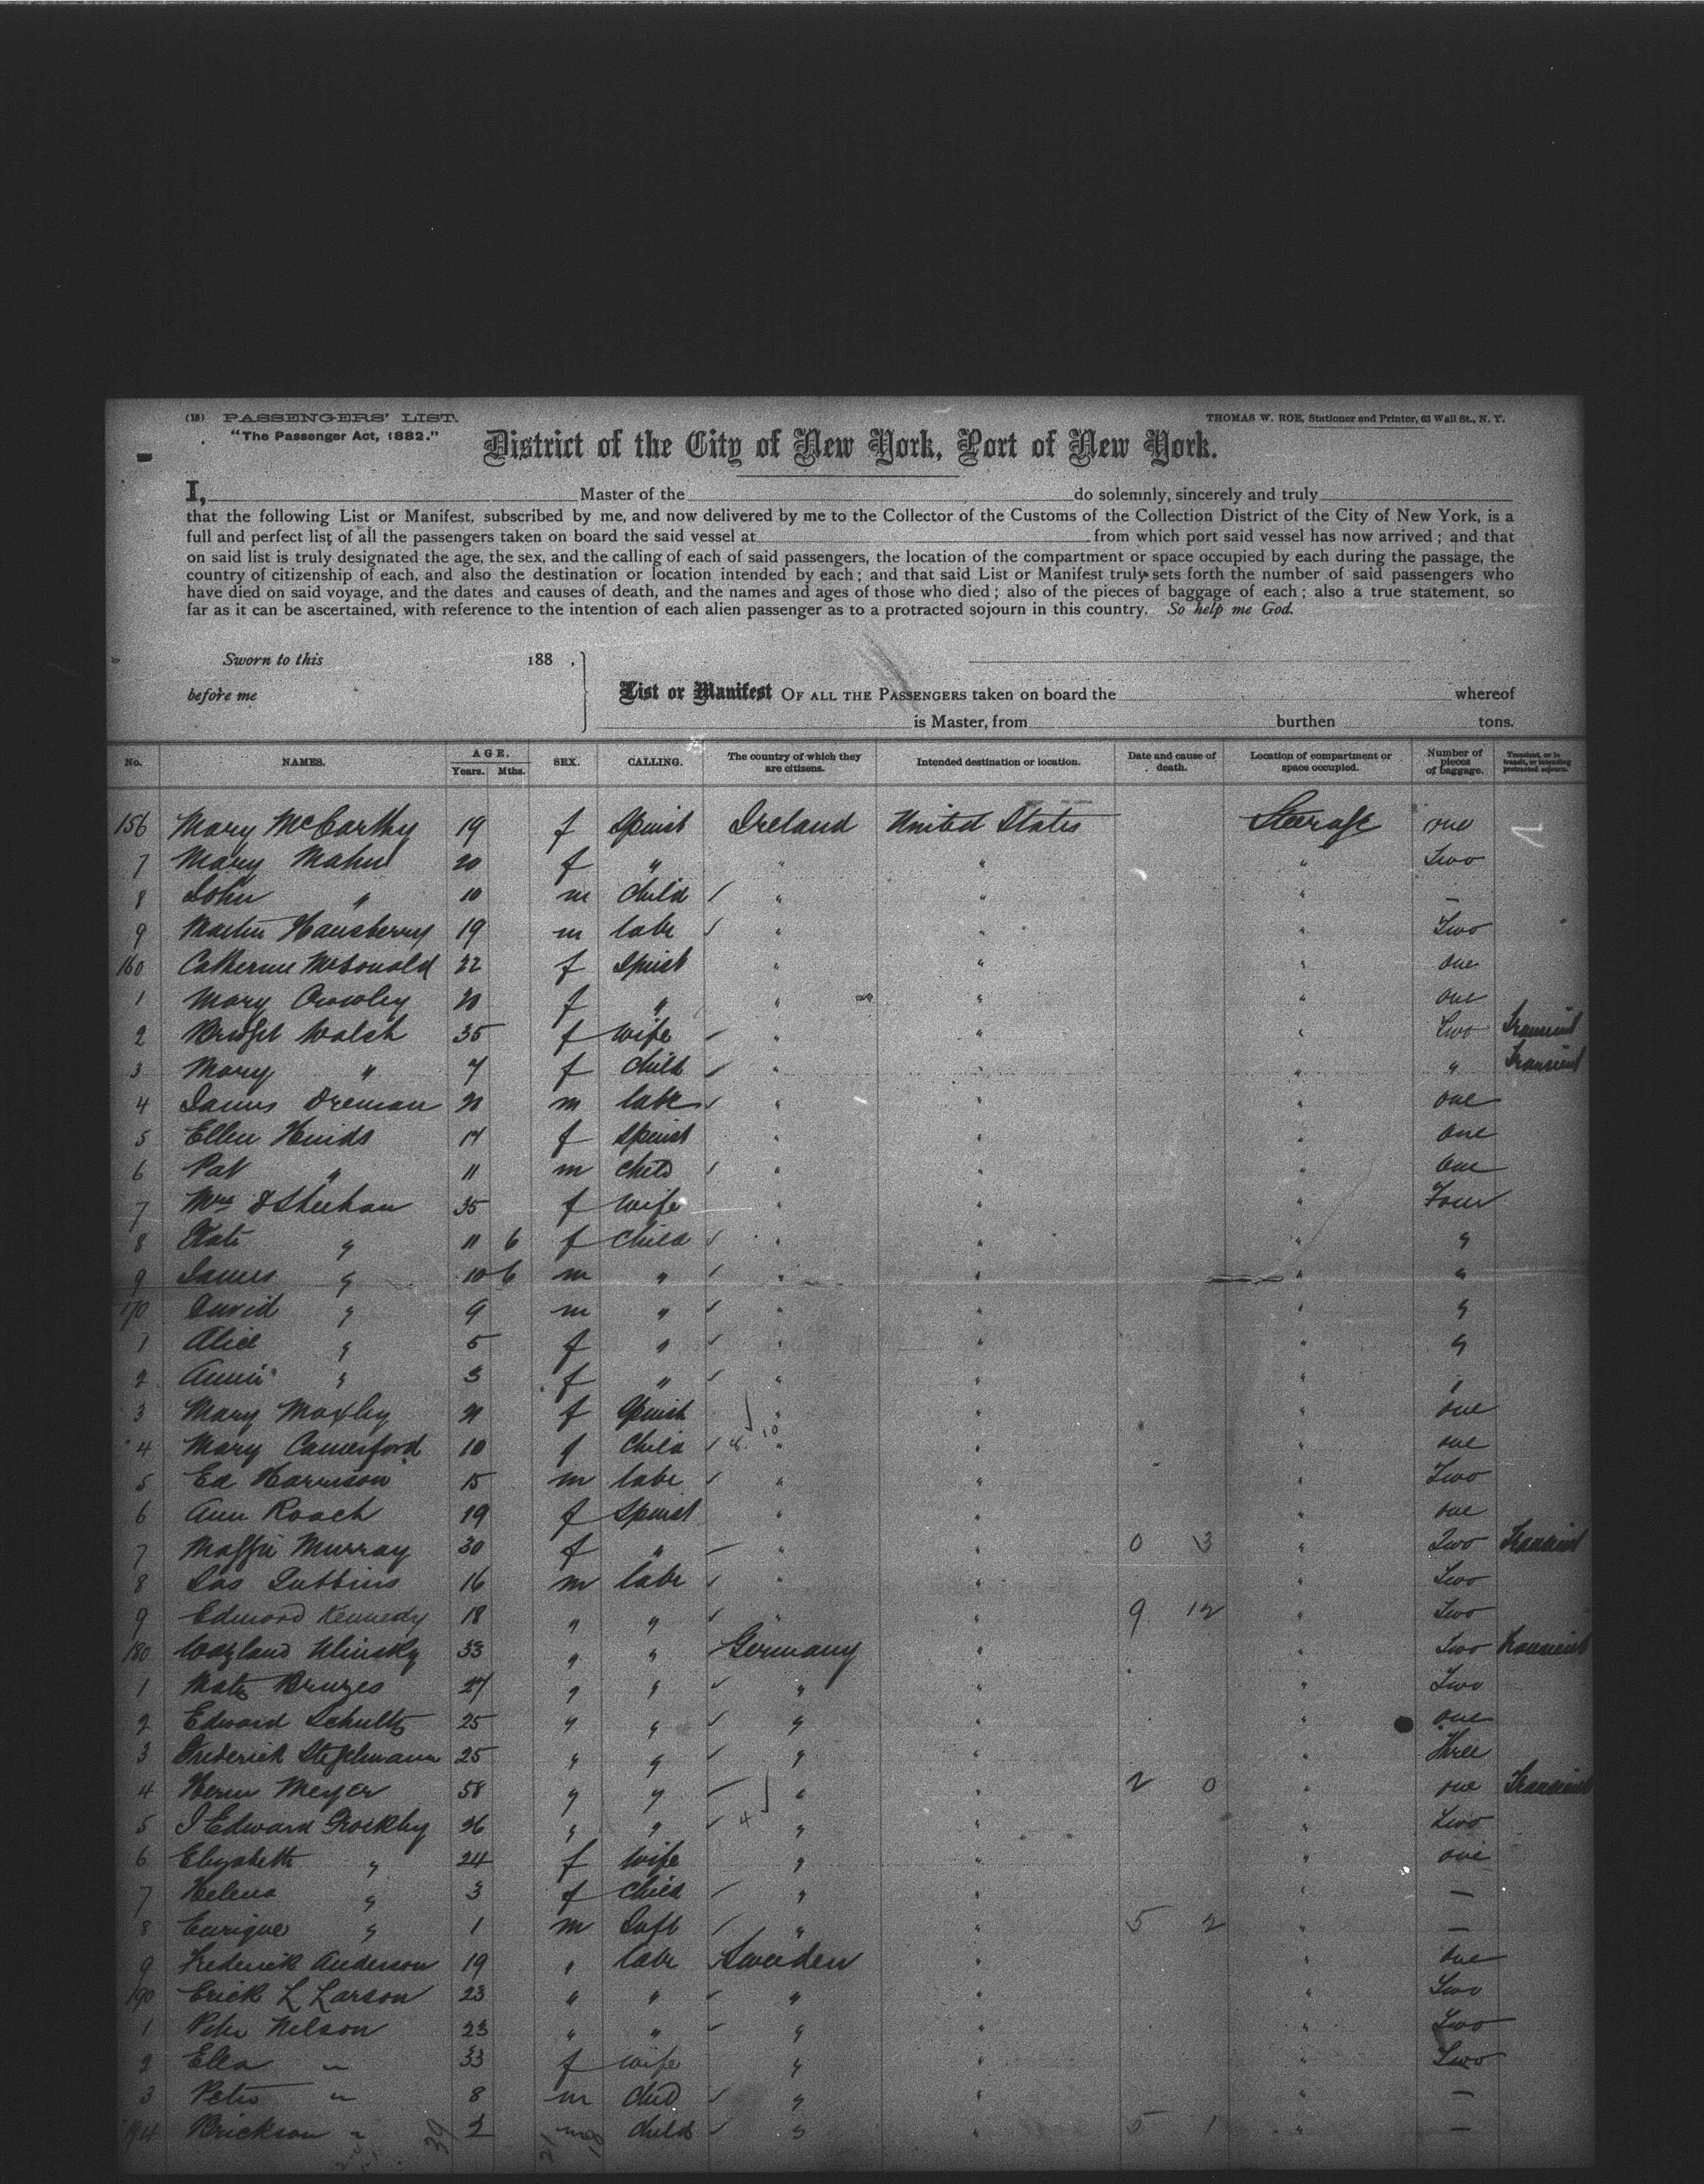 (18) PASSENGERS' LIST.
THOMAS W. ROE, Stationer and Printer, 63 Wall St., N. Y.
"The Passenger Act, 1882."
District of the City of New York, Port of New York.
I, Master of the do solemnly, sincerely and truly
that the following List or Manifest, subscribed by me, and now delivered by me to the Collector of the Customs of the Collection District of the City of New York, is a
full and perfect list of all the passengers taken on board the said vessel at from which port said vessel has now arrived; and that
on said list is truly designated the age, the sex, and the calling of each of said passengers, the location of the compartment or space occupied by each during the passage, the
country of citizenship of each, and also the destination or location intended by each; and that said List or Manifest truly sets forth the number of said passengers who
have died on said voyage, and the dates and causes of death, and the names and ages of those who died; also of the pieces of baggage of each; also a true statement, so
far as it can be ascertained, with reference to the intention of each alien passenger as to a protracted sojourn in this country. So help me God.
Sworn to this 188 .
before me
List or Manifest OF ALL THE PASSENGERS taken on board the whereof
is Master, from burthen tons.
No. NAMES. AGE. Years. Mths. SEX. CALLING. The country of which they are citizens. Intended destination or location. Date and cause of death. Location of compartment or space occupied. Number of pieces of baggage. Transient, or in transit, or intending protracted sojourn.
156 Mary McCarthy 19 f Spinst Ireland United States Steerage one
7 Mary Mahu 20 f " " " " Two
8 John " 10 m child " " " —
9 Martin Hansberry 19 m labr " " " Two
160 Catherine McDonald 22 f Spinst " " " one
1 Mary Crowley f " " " " one
2 Bridget Walsh 35 f wife " " " Two Transient
3 Mary " 7 f child " " " " Transient
4 James m labr " " " one
5 Ellen Hinds 17 f Spinst " " " one
6 Pat " 11 m child " " " one
7 Mrs Sheehan 35 f wife " " " Four
8 Kate " 11 6 f child " " " "
9 James " 10 6 m " " " " "
170 David " 9 m " " " " "
1 Alice " 5 f " " " " "
2 Annie " 3 f " " " " "
3 Mary Moxley f Spinst " " " one
4 Mary Comerford 10 f child " " " one
5 Ed Harrison 15 m labr " " " Two
6 Ann Roach 19 f Spinst " " " one
7 Maggie Murray 30 f " " " 0 3 " Two Transient
8 Jas Gubbins 16 m labr " " " Two
9 Edward Kennedy 18 " " " " 9 12 " Two
180 33 " " Germany " " Two Transient
1 27 " " " " " Two
2 Edward Schultz 25 " " " " " one
3 Frederick Stegelmann 25 " " " " " Three
4 Herm Meyer 58 " " " " 2 0 " one Transient
5 J Edward 26 " " " " " Two
6 Elizabeth " 24 f wife " " " one
7 Helena " 3 f child " " " —
8 Enrique " 1 m Inft " " 5 2 " —
9 Frederick Anderson 19 " labr Sweeden " " one
190 Erick L Larson 23 " " " " " Two
1 Peter Nelson 23 " " " " " Two
2 Ella " 33 f wife " " " Two
3 Peter " 8 m child " " " —
194 Brickson " 2 m child " " 5 1 " —
39 21 18